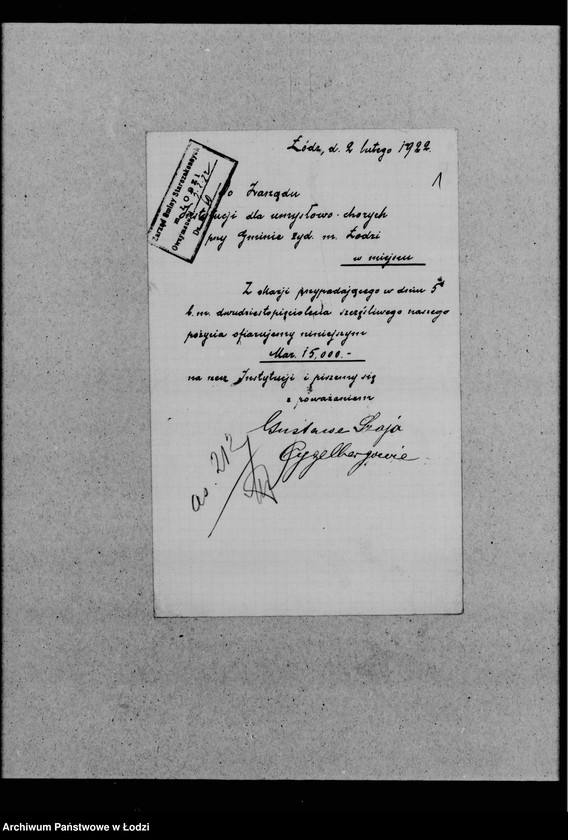 Łódź, d. 2 lutego 1922.
1
Zarząd Gminy Starozakonnych
m. ŁODZI
Otrzymano
Do Zarządu
Instytucji dla umysłowo-chorych
przy Gminie żyd. m. Łodzi
w miejscu
Z okazji przypadającego w dniu 5
b. m. dwudziestopięciolecia szczęśliwego naszego
pożycia ofiarujemy niniejszym
Mar. 15,000.-
na rzecz Instytucji i piszemy się
z poważaniem
as. 212
Archiwum Państwowe w Łodzi